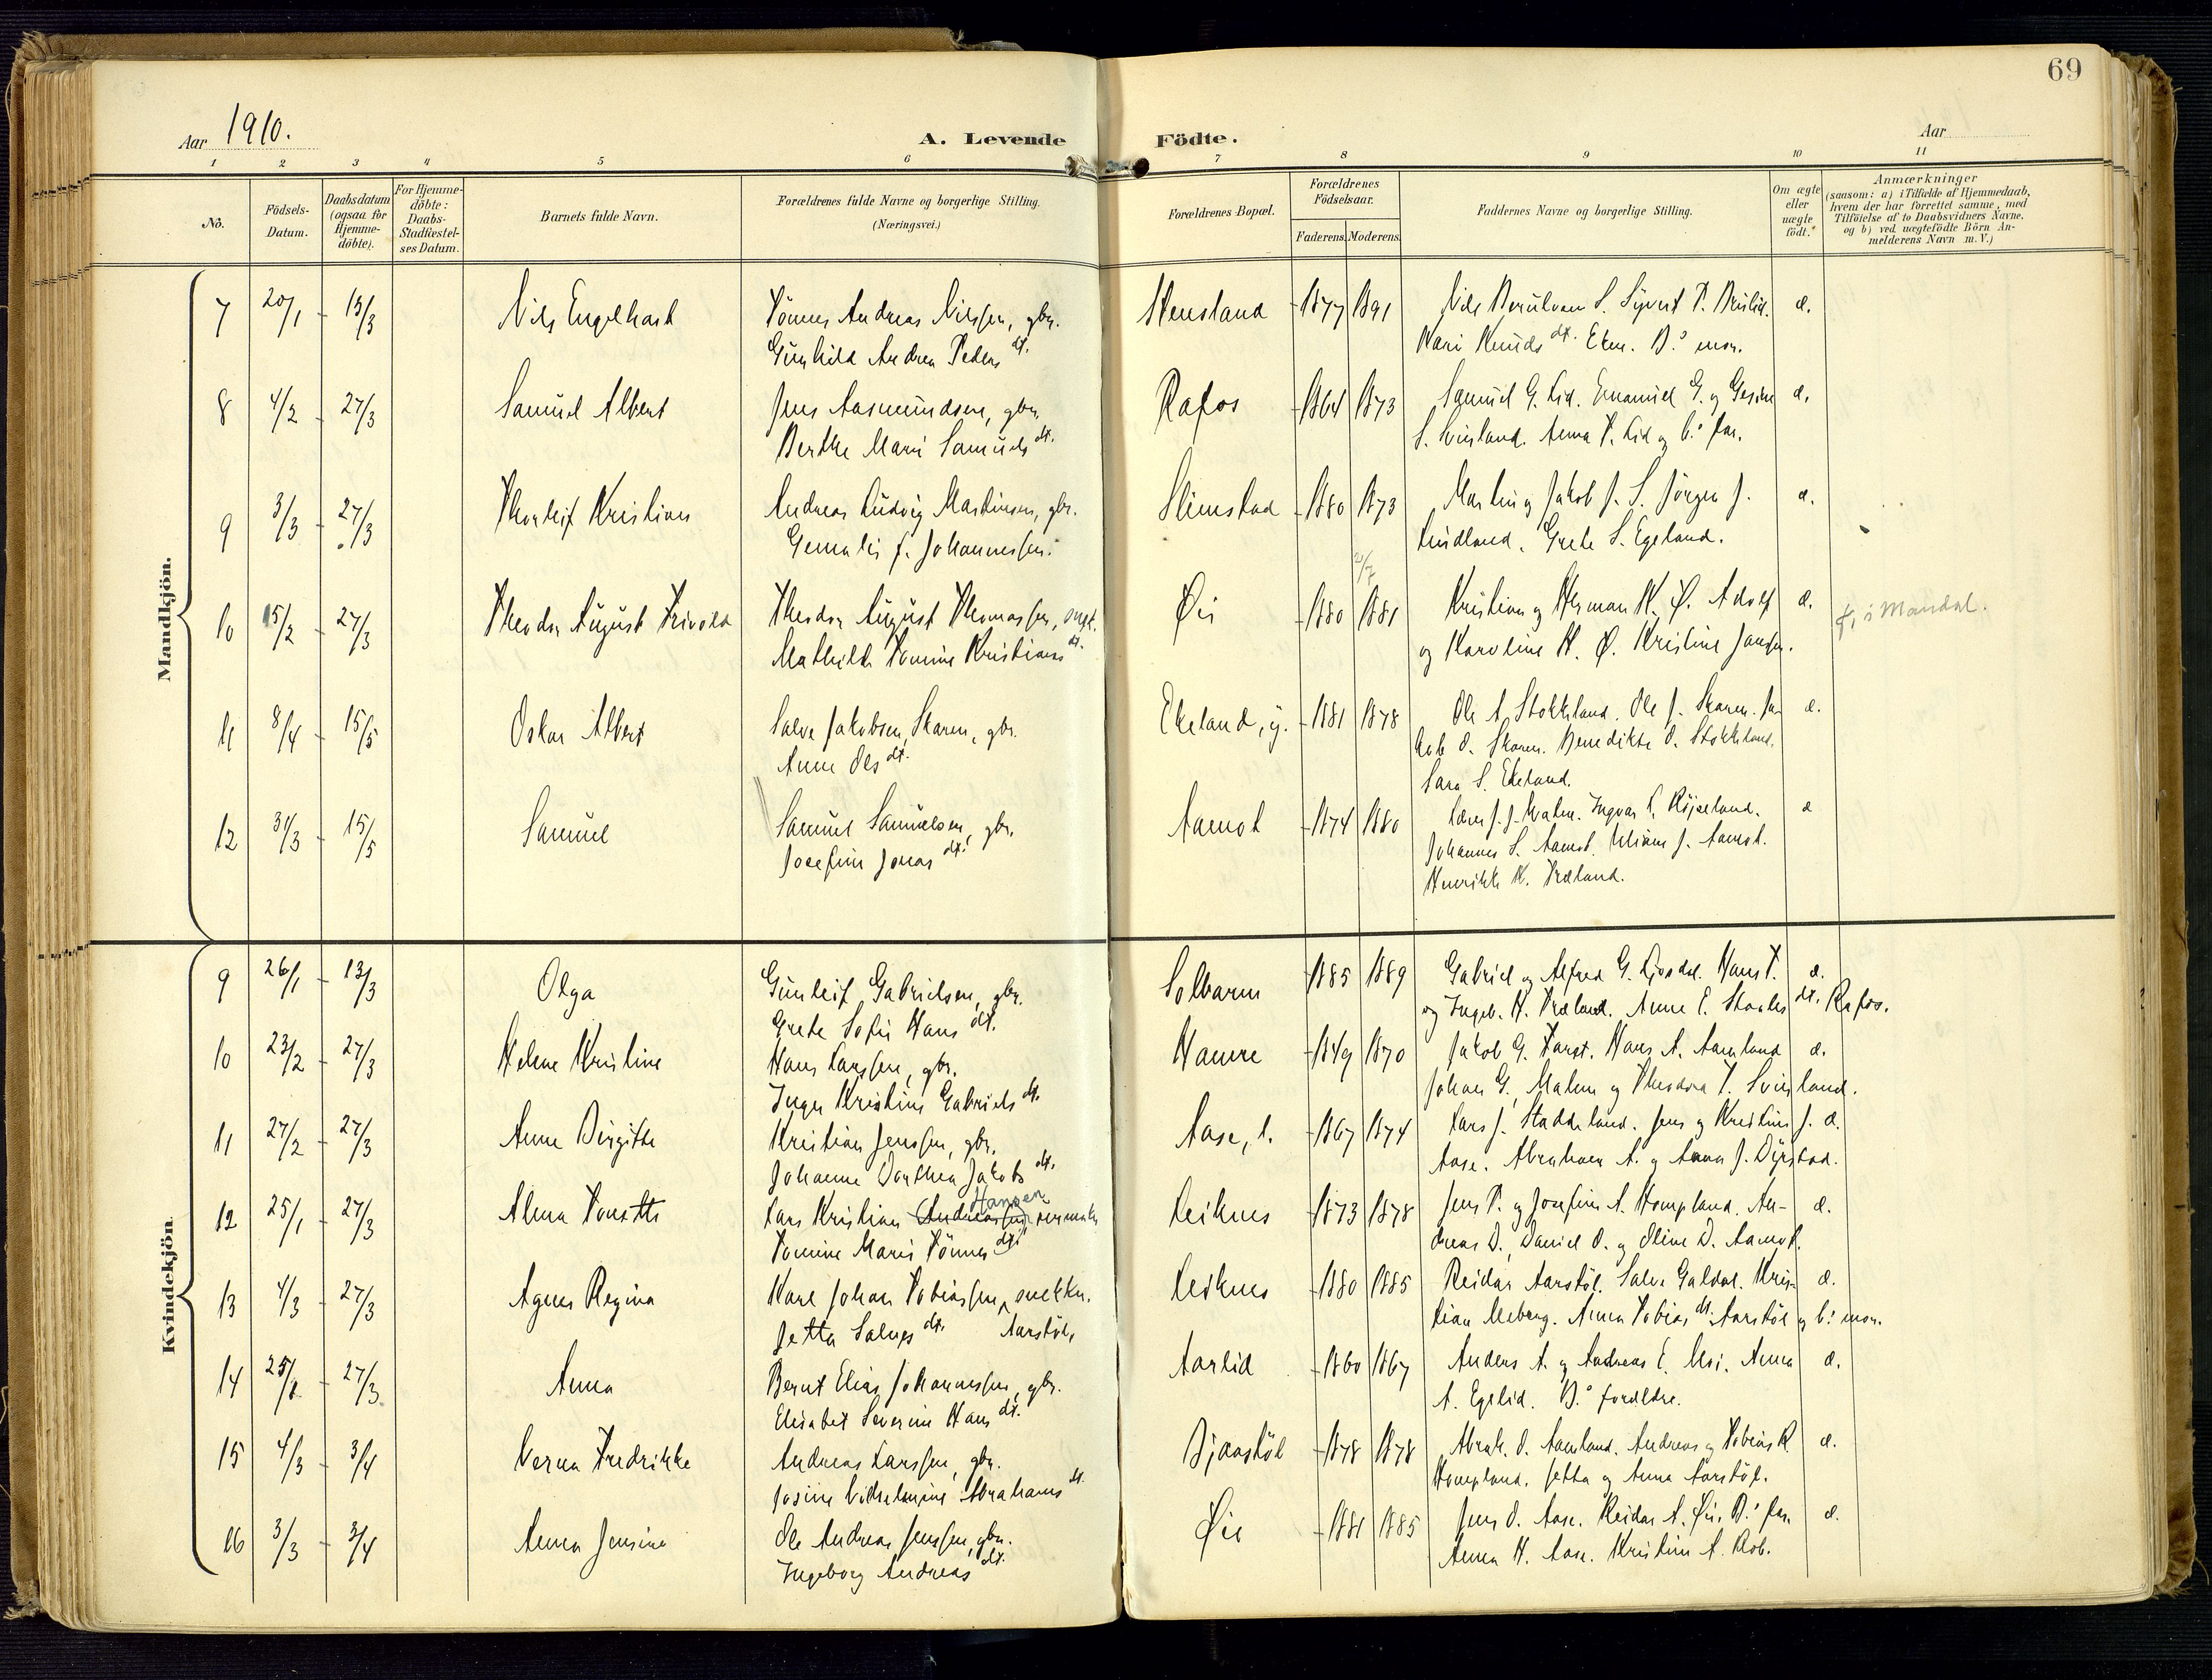 69
Aar 1910.
A. Levende Födte.
Aar
1 2 3 4 5 6 7 8 9 10 11
No.
Födsels-Datum.
Daabsdatum (ogsaa for Hjemme-döbte).
For Hjemme-döbte: Daabs-Stadfæstel-ses Datum.
Barnets fulde Navn.
Forældrenes fulde Navne og borgerlige Stilling.
(Næringsvei.)
Forældrenes Bopæl.
Forældrenes Födselsaar.
Faderens. Moderens.
Faddernes Navne og borgerlige Stilling.
Om ægte eller uægte födt.
Anmærkninger
(saasom: a) i Tilfælde af Hjemmedaab,
hvem der har forrettet samme, med
Tilföielse af to Daabsvidners Navne.
og b) ved uægtefödte Börn An-
melderens Navn m. V.)
Mandkjön.
7 20/1 - 13/3 Nils Engelhart Tönnes Andreas Nilssen, gbr. Stensland - 1877 1891 Nils S. Sivert T. æ.
Gunhild Andrea Peders dt. Kari Knuds dt. Eken. B.s mor.
8 4/2 - 27/3 Samuel Albert Jens Aasmundsen, gbr. Rafos - 1864 1873 Samuel G. Lid. Emanuel G. og Gesine æ.
Berthe Marie Samuels dt. S. Sveisland. Anna T. Lid og b.s far.
9 3/3 - 27/3 Thorleif Kristian Andreas Ludvig Martinsen, gbr. Slimstad - 1880 1873 Martin og Jakob J. S. Jörgen J. æ.
f. Johannessen. Lindland. Grete S. Egeland.
2/7
10 15/2 - 27/3 Theodor August Theodor August Thomassen, Øie - 1880 1881 Kristian og Herman K. Ø. Adolf æ. f. i Mandal.
Mathilde Tomine Kristians dt. og Karoline K. Ø. Kristine Jansen.
11 8/4 - 15/5 Oskar Albert Salve Jakobsen, Skaren, gbr. Ekeland, y. - 1881 1878 Ole A. Stokkland. Ole J. Skaren. Ja- æ.
Anne Ols dt. kob O. Skaren. Benedikte O. Stokkland.
Sara S. Ekeland.
12 31/3 - 15/5 Samuel Samuel Samuelsen, gbr. Aamot - 1874 1880 J. J. Ingvar æ
Josefine Jonas dt. Johannes S. Aamot. J. Aamot.
Henrikke K. Træland.
Kvindekjön
9 26/1 - 13/3 Olga Gunleif Gabrielsen, gbr. Solbarm - 1885 1889 Gabriel og Alfred G. Hans T. æ.
Grete Sofie Hans dt. og Ingeb. H. Træland. Anne E. dt. Rafos.
10 23/2 - 27/3 Helene Kristine Hans Larssen, gbr. Hamre - 1849 1870 Jakob G. Hans A. Aamland æ.
Inger Kristine Gabriels dt. Johan G., Malene og Theodora T. Sveisland.
11 27/2 - 27/3 Anne Birgitte Kristian Jenssen, gbr. Aase, l. - 1867 1874 Lars J. Staddeland. Jens og Kristine J. æ.
Johanne Dorthea Jakobs dt. Aase. Abraham A. og Anna J. Dyrstad.
12 25/1 - 27/3 Alma Lars Kristian Andreassen Hansen, Leiknes - 1873 1878 Jens T. og Josefine A. Hompland. An- æ.
Tomine Marie Tönnes dt. dreas D., Daniel O. og Oline D. Aamot.
13 4/3 - 27/3 Agnes Regina Karl Johan Tobiassen, snekker. Leiknes - 1880 1885 Reidar Aarstöl. Salve Galdal. Kris- æ.
Jetta Salves dt. Aarstöl, tian Meberg. Anna Tobias dt. Aarstöl og b.s mor.
14 - 27/3 Anna Bernt Elias Johannessen, gbr. Aarlid - 1860 1867 Anders A. og Andreas E. Moi. Anna æ.
Elisabet Severine Hans dt. A. Egelid. B.s forældre.
15 4/3 - 3/4 Verna Fredrikke Andreas Larssen, gbr. - 1878 1878 Abrah. O. Aamland. Andreas og Tobias R. æ.
Josine Vilhelmine Abrahams dt. Hompland. Jetta og Anna Aarstöl.
16 3/3 - 3/4 Anna Jensine Ole Andreas Jenssen, gbr. Øie - 1881 1885 Jens O. Aase. Reidar A. Øie. B.s far. æ.
Ingeborg Andreas dt. Anna H. Aase. Kristine A. Rob.